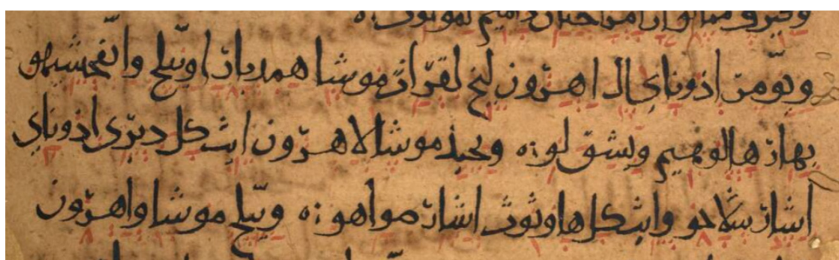 ويومر اذوناي ال اهرون ليخ لقراث موشا همدبارا ويّلخ ويّفجشيهو
بهار هالوهيم ويشق لو ۝ ويجيذ موشا لاهرون اث كل دبري اذوناي
اشار شلاحو واث كل هاوثوث اشار صواهو ۝ ويّلخ موشا واهرون